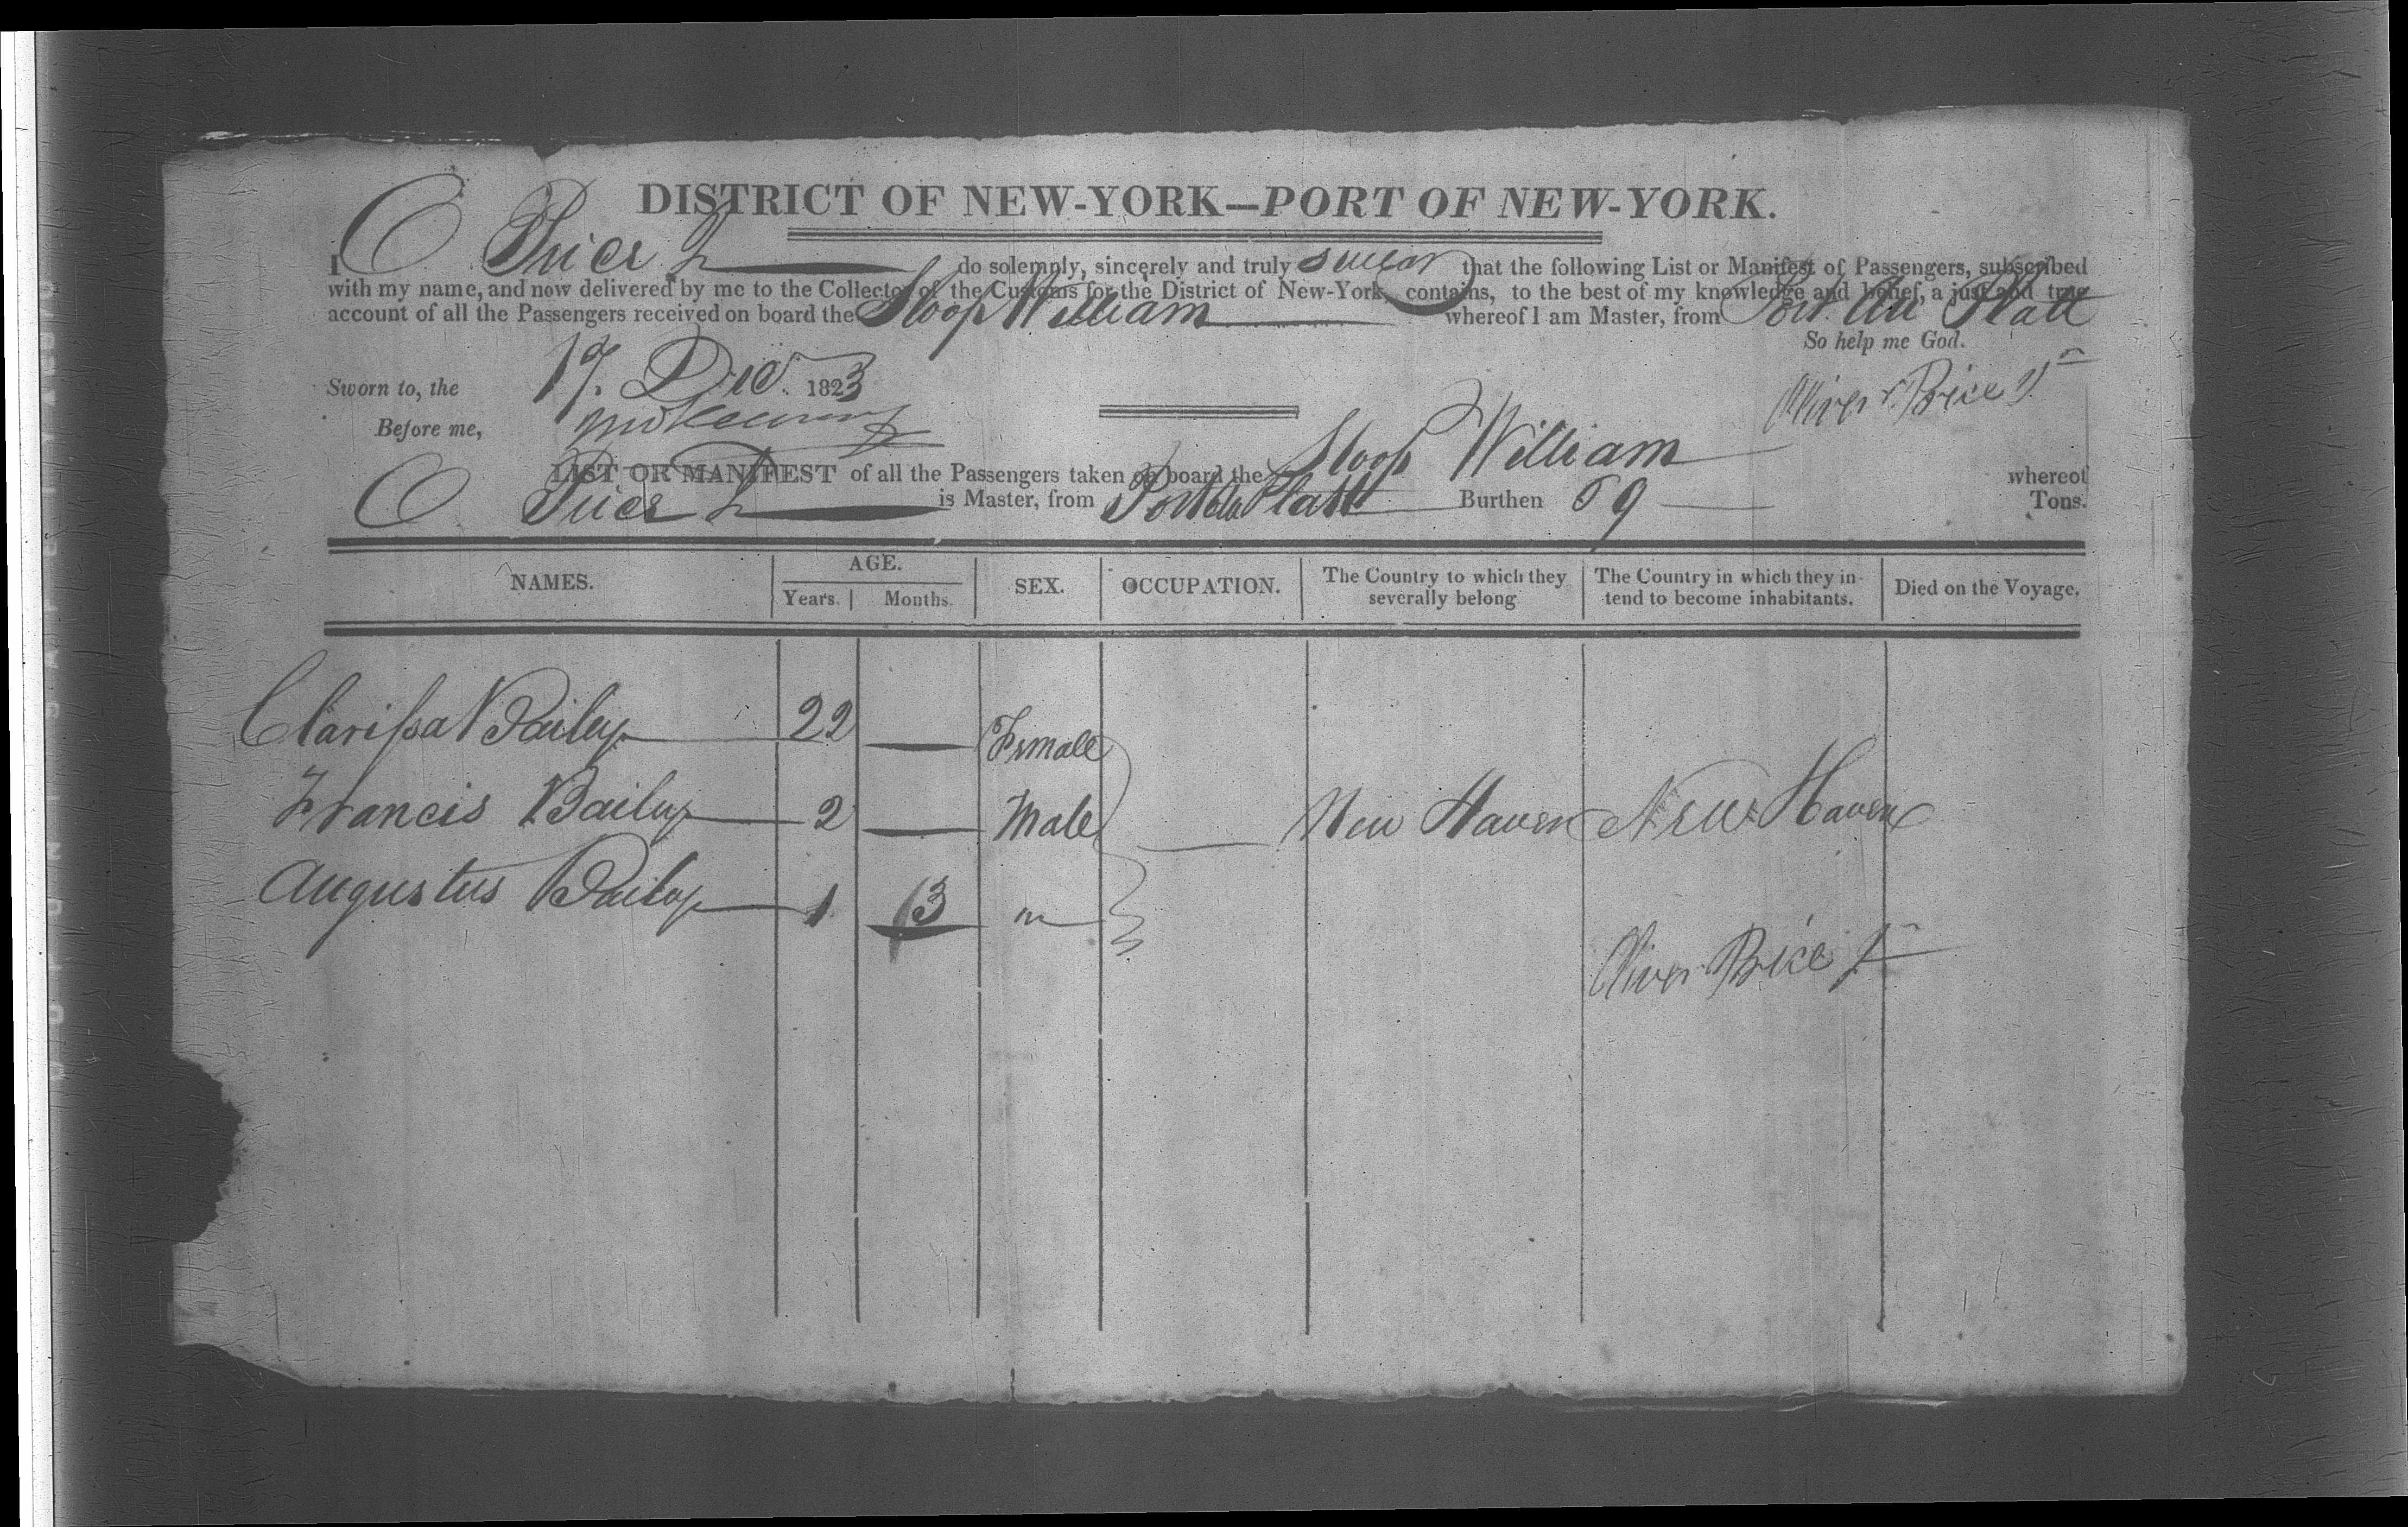 DISTRICT OF NEW-YORK—PORT OF NEW-YORK.
I O Price Jr do solemnly, sincerely and truly swear that the following List or Manifest of Passengers, subscribed
with my name, and now delivered by me to the Collector of the Customs for the District of New-York, contains, to the best of my knowledge and belief, a just and true
account of all the Passengers received on board the Sloop William whereof I am Master, from Port Au Platt
So help me God.
Sworn to, the 17. Dec. 1823
Oliver Price Jr
Before me,
LIST OR MANIFEST of all the Passengers taken on board the Sloop William whereof
O Price Jr is Master, from Port Platt Burthen 69 Tons.
NAMES. AGE. Years. Months. SEX. OCCUPATION. The Country to which they severally belong The Country in which they intend to become inhabitants. Died on the Voyage.
Clarissa Bailey 22 — Female
Francis Bailey 2 — Male — New Haven New Haven
Augustus Bailey 1 3 m
Oliver Price Jr